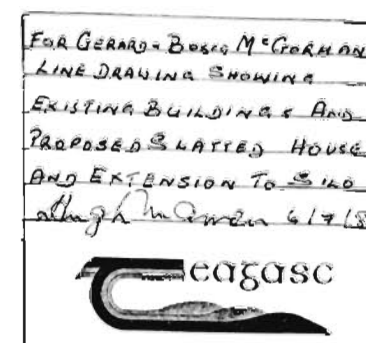 FOR GERARD & BOSCO McGORMAN
LINE DRAWING SHOWING
EXISTING BUILDINGS AND
PROPOSED SLATTED HOUSE
AND EXTENSION TO SILO
Hugh 6/7/8
teagasc